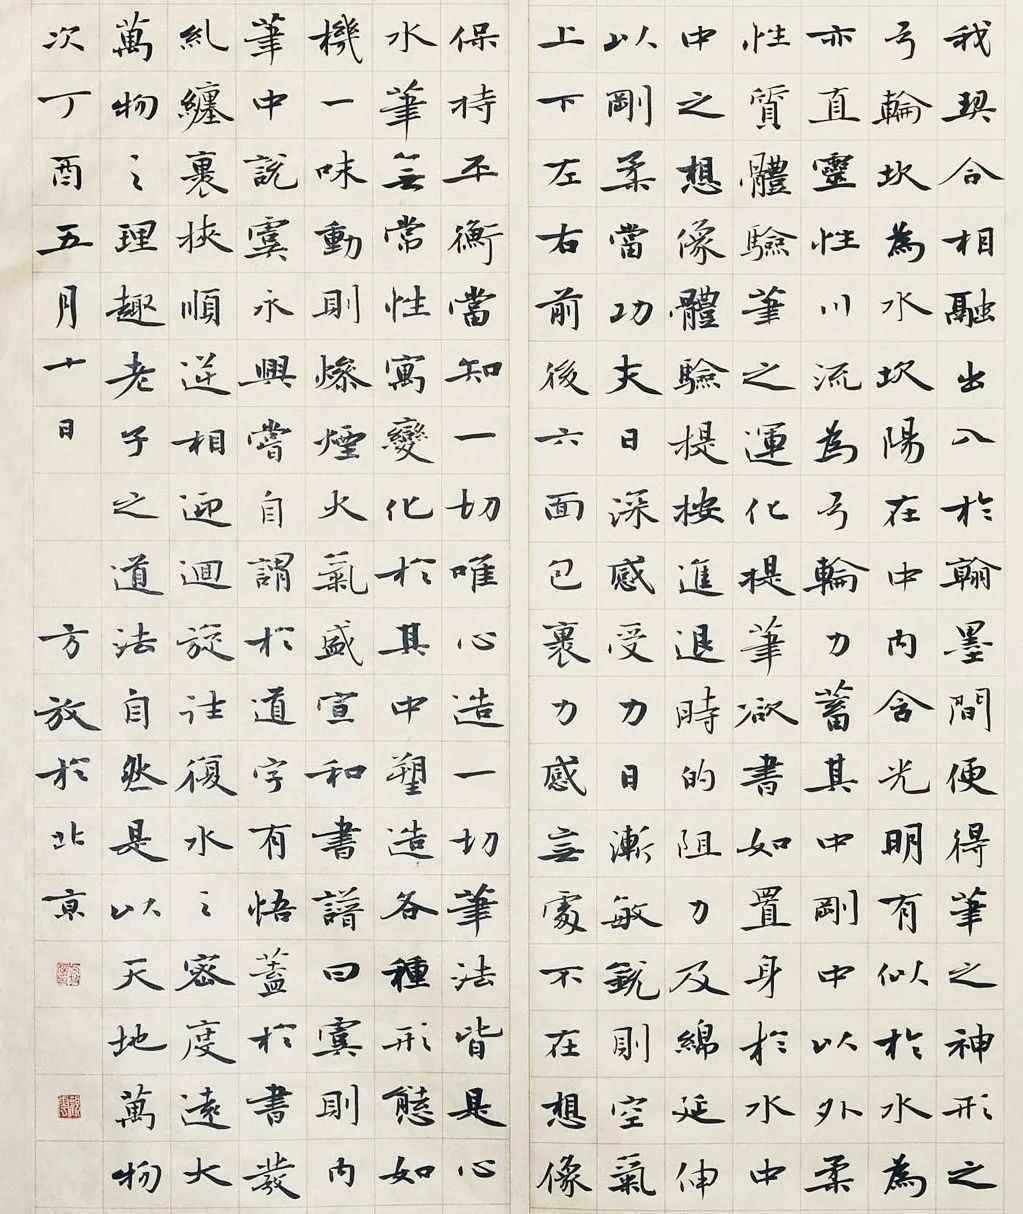 我契合相融出入於翰墨間便得筆之神形之
弓輪坎為水坎陽在中內含光明有似於水為
亦直靈性川流為弓輪力蓄其中剛中以外柔
性質體驗筆之運化提筆欲書如置身於水中
中之想像體驗提按進退時的阻力及綿延伸
以剛柔當功夫日深感受力日漸敏銳則空氣
上下左右前後六面包裹力感無處不在想像
保持平衡當知一切唯心造一切筆法皆是心
水筆無常性寓變化於其中塑造各種形態如
機一味動則燥煙火氣盛宣和書譜曰虞則內
筆中說虞永興嘗自謂於道字有悟蓋於書發
糺纏裹挾順逆相迎迴旋往復水之密度遠大
萬物之理趣老子之道法自然是以天地萬物
次丁酉五月十日 方放於北京